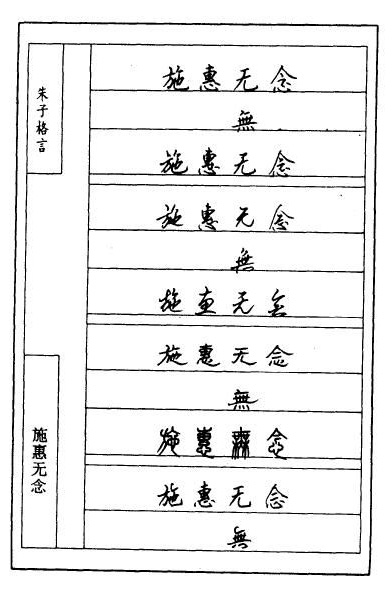 朱子格言
施惠无念
施惠无念
無
施惠无念
施惠无念
無
施惠无念
施惠无念
無
施惠無念
施惠无念
無